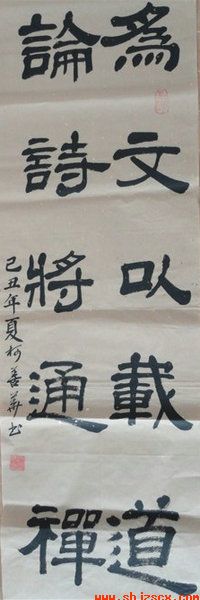 為文以載道
論詩將通禪
己丑年夏柯善華书
www.shizscx.com